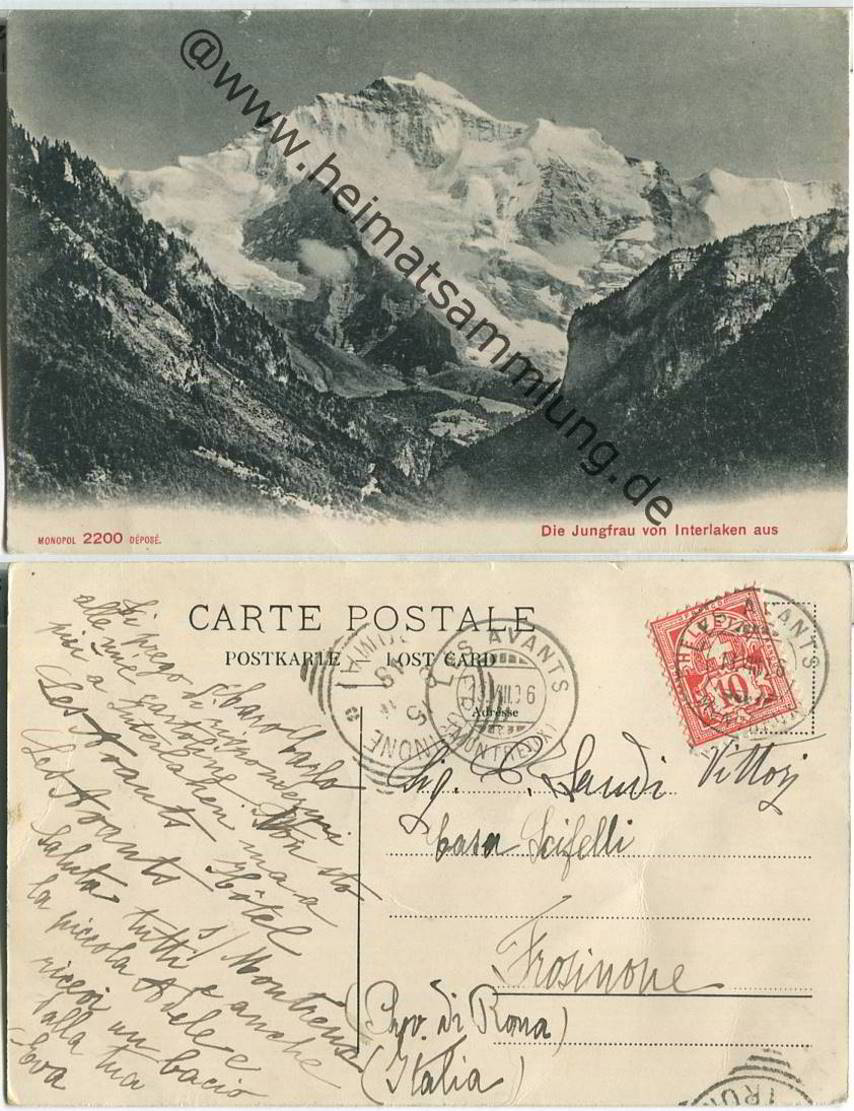 @www.heimatsammlung.de
MONOPOL 2200 DÉPOSÉ.
Die Jungfrau von Interlaken aus
CARTE POSTALE
POSTKARTE LOST CARD
Adresse
LES AVANTS
13.VIII.06
(MONTREUX)
AVANTS
HELVETIA
10
Caro Carlo
Ti prego di rispondermi
alle mie cartoline. Non sto
più a Interlaken ma a
Les Avants Hôtel
Les Avants s/ Montreux
Saluta tutti e anche
la piccola Adele e
ricevi un bacio
dalla tua
Eva
Sig. C. Landi Vittorj
Casa Scifelli
Frosinone
(Prov. di Roma)
(Italia)